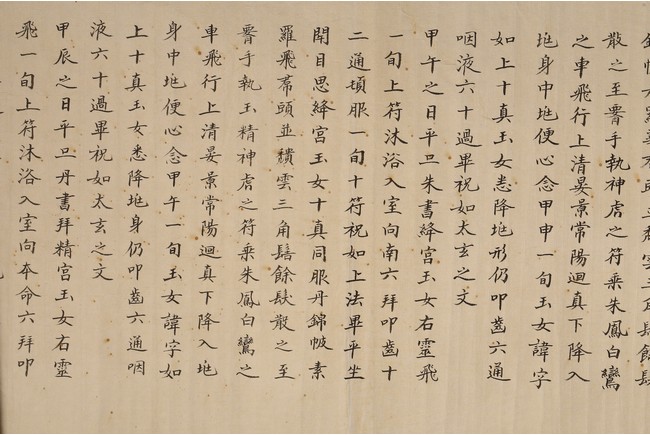 散之至腰手執神虎之符乘朱鳳白鸞
之車飛行上清晏景常陽迴真下降入
兆身中兆便心念甲申一旬玉女諱字
如上十真玉女悉降兆形仍叩齒六通
咽液六十過畢祝如太玄之文
甲午之日平旦朱書絳宮玉女右靈飛
一旬上符沐浴入室向南六拜叩齒十
二通頓服一旬十符祝如上法畢平坐
閉目思絳宮玉女十真同服丹錦帔素
羅飛帬頭並頹雲三角髻餘髮散之至
腰手執玉精神虎之符乘朱鳳白鸞之
車飛行上清晏景常陽迴真下降入兆
身中兆便心念甲午一旬玉女諱字如
上十真玉女悉降兆身仍叩齒六通咽
液六十過畢祝如太玄之文
甲辰之日平旦丹書拜精宮玉女右靈
飛一旬上符沐浴入室向本命六拜叩